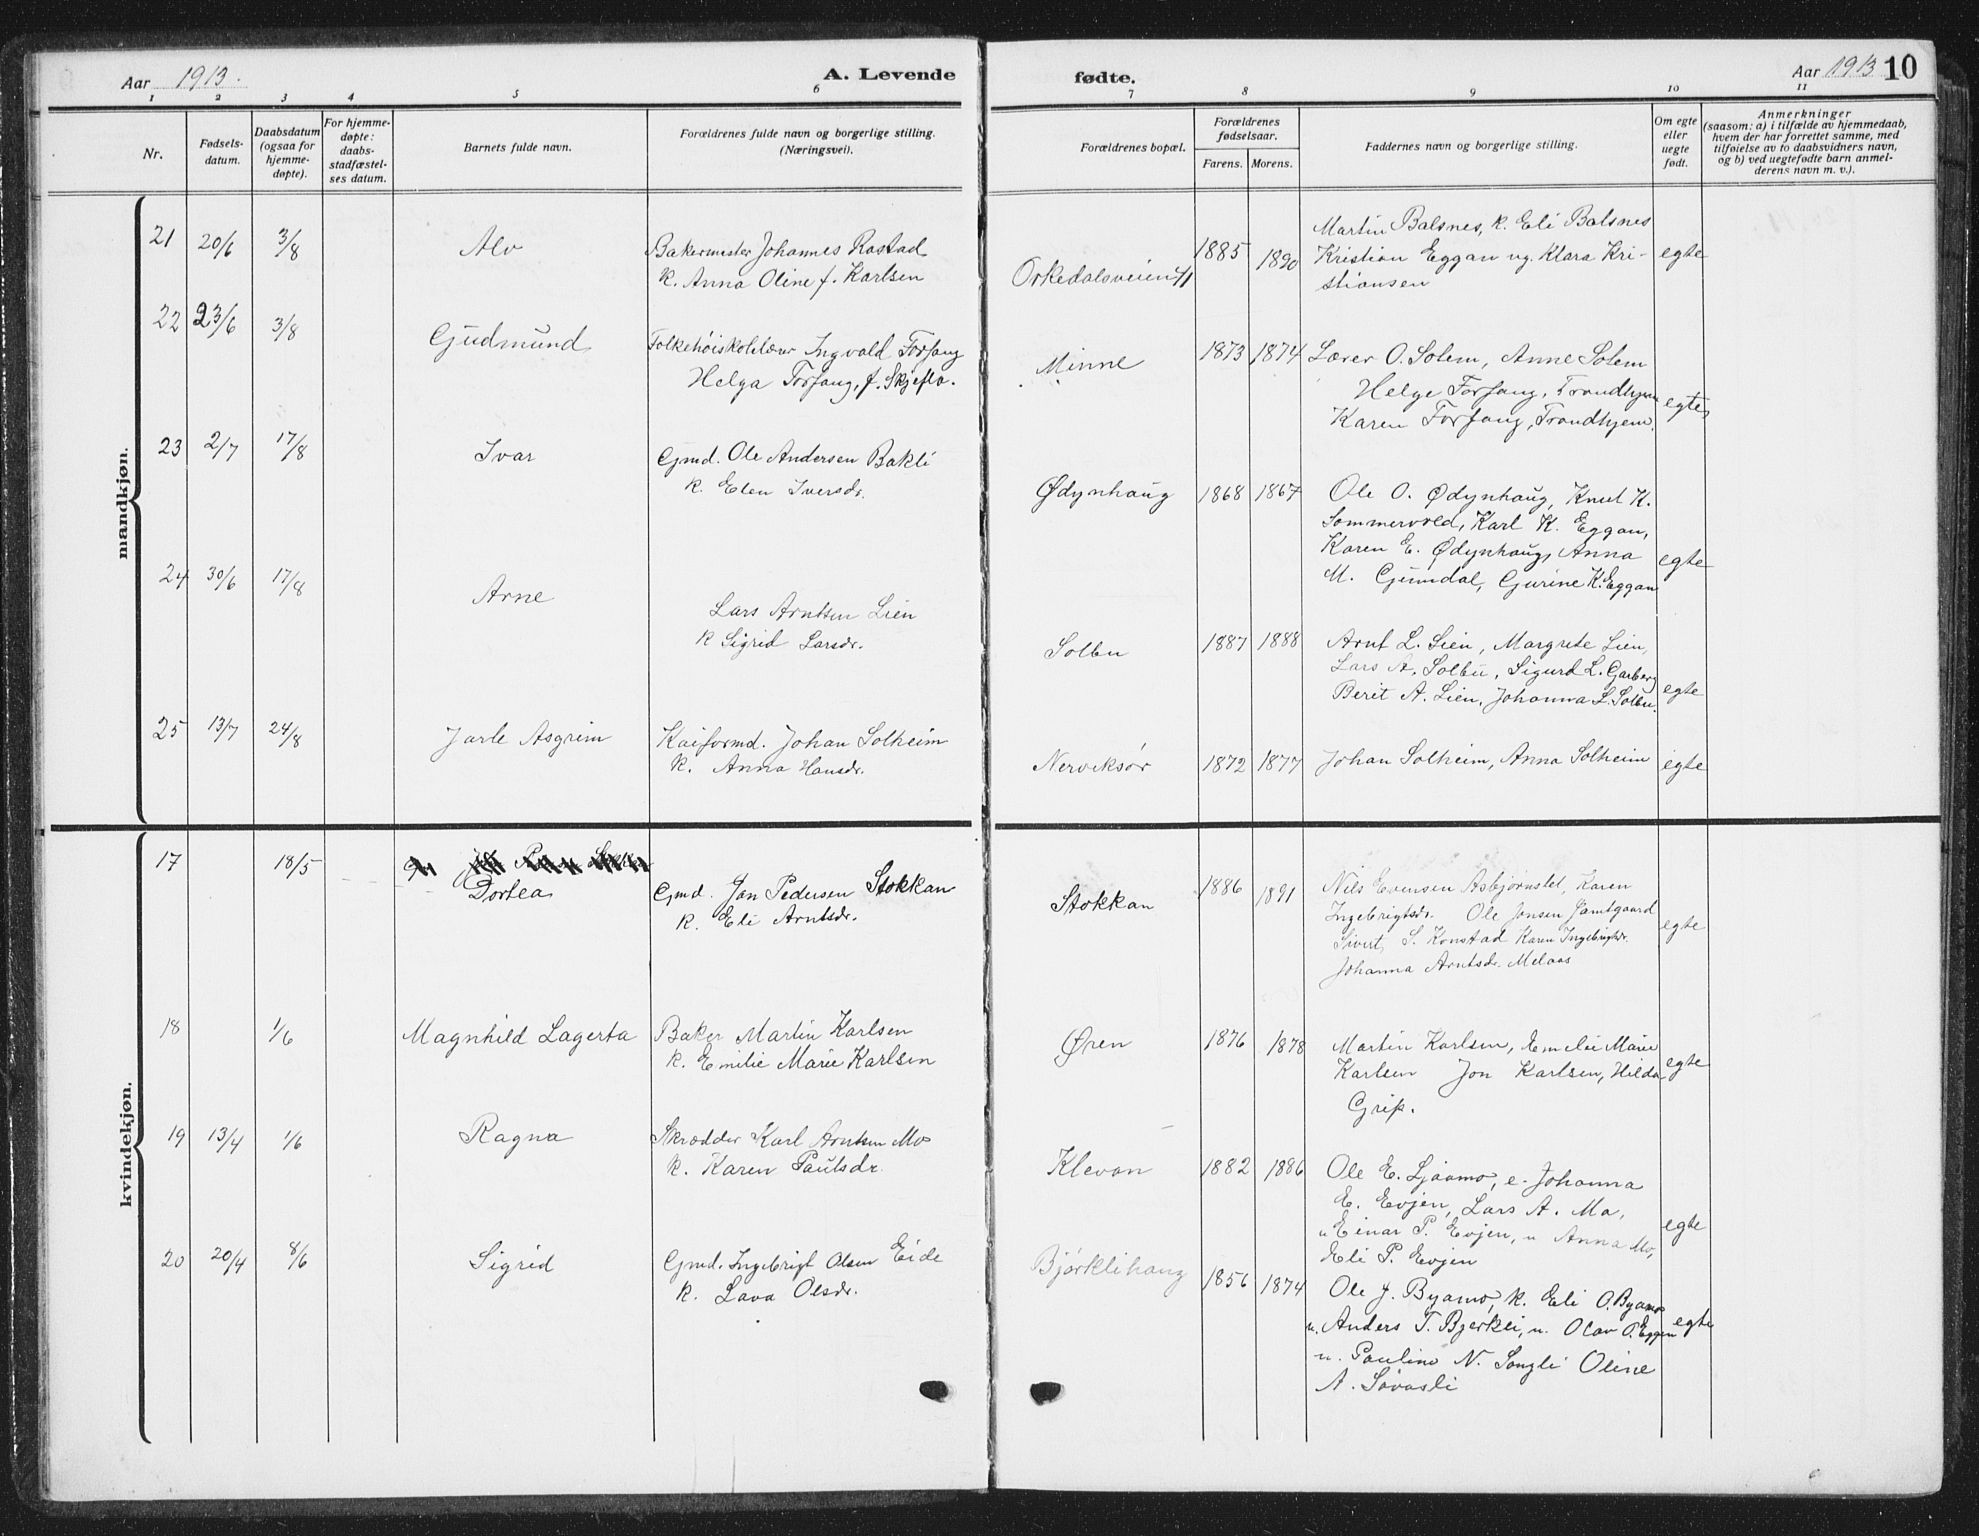 Aar 1913.
A. Levende
fødte.
Aar 1913
10
1 2 3 4 5 6 7 8 9 10 11
Nr.
Fødsels-
datum.
Daabsdatum
(ogsaa for
hjemme-
døpte).
For hjemme-
døpte:
daabs-
stadfæstel-
ses datum.
Barnets fulde navn.
Forældrenes fulde navn og borgerlige stilling.
(Næringsvei).
Forældrenes bopæl.
Forældrenes
fødselsaar.
Farens. Morens.
Faddernes navn og borgerlige stilling.
Om egte
eller
uegte
født.
Anmerkninger
(saasom: a) i tilfælde av hjemmedaab,
hvem der har forrettet samme, med
tilføielse av to daabsvidners navn,
og b) ved uegtefødte barn anmel-
derens navn m. v.).
mandkjøn.
21 20/6 3/8 Alv
Bakermester Johannes Rostad
k. Anna Oline f. Karlsen
Orkedalsveien 41
1885 1890
Martin Balsnes, k. Eli Balsnes
Kristian Eggan ug. Klara Kri-
stiansen
egte
22 23/6 3/8 Gudmund
Folkehøiskolelærer Ingvald Forfang
Helga Forfang, f. Skjeflo.
Minne
1873 1874
Lærer O. Solem, Anne Solem
Helge Forfang, Trondhjem
Karen Forfang, Trondhjem.
egte
23 2/7 17/8 Ivar
Gmd. Ole Andersen Bakli
k. Elen Iversdr.
Ødynhaug
1868 1867
Ole O. Ødynhaug, Knut K.
Sommervold, Karl K. Eggan,
Karen E. Ødynhaug, Anna
M. Gumdal, Gurine K. Eggan
egte
24 30/6 17/8 Arne
Lars Arntsen Lien
k Sigrid Larsdr.
Solbu
1887 1888
Arnt L. Lien, Margrete Lien,
Lars A. Solbu, Sigurd L. Garberg
Berit A. Lien, Johanna L. Solbu.
egte
25 13/7 24/8 Jarle Asgrim
Kaiformd. Johan Solheim
k. Anna Hansdr.
Nerviksør
1872 1877
Johan Solheim, Anna Solheim
egte
kvindekjøn.
17 18/5
Dortea
Gmd. Jon Pedersen Stokkan
k. Eli Arntsdr.
Stokkan
1886 1891
Nils Evensen Asbjørnslet, Karen
Ingebrigtsdr. Ole Jonsen Jamtgaard
Sivert S. Konstad Karen Ingebrigtsdr.
Johanna Arntsdr. Melaas
egte
18 1/6 Magnhild Lagerta
Baker Martin Karlsen
k. Emilie Marie Karlsen
Øren
1876 1878
Martin Karlsen, Emelie Marie
Karlsen Jon Karlsen, Hilda
Grip.
egte
19 13/4 1/6 Ragna
Skrædder Karl Arntsen Mo
k. Karen Paulsdr.
Klevan
1882 1886
Ole E. Ljåamo, e. Johanna
E. Evjen, Lars A. Mo,
u Einar P. Evjen, u Anna Mo,
Eli P. Evjen
egte
20 20/4 8/6 Sigrid
Gmd. Ingebrigt Olsen Eide
k. Lava Olsdr.
Bjørklihaug
1856 1874
Ole J. Byamo, k. Eli O. Byamo
u. Anders T. Bjerkli, u. Olav O. Eggen
u. Pauline N. Songli Oline
A. Sóvasli
egte